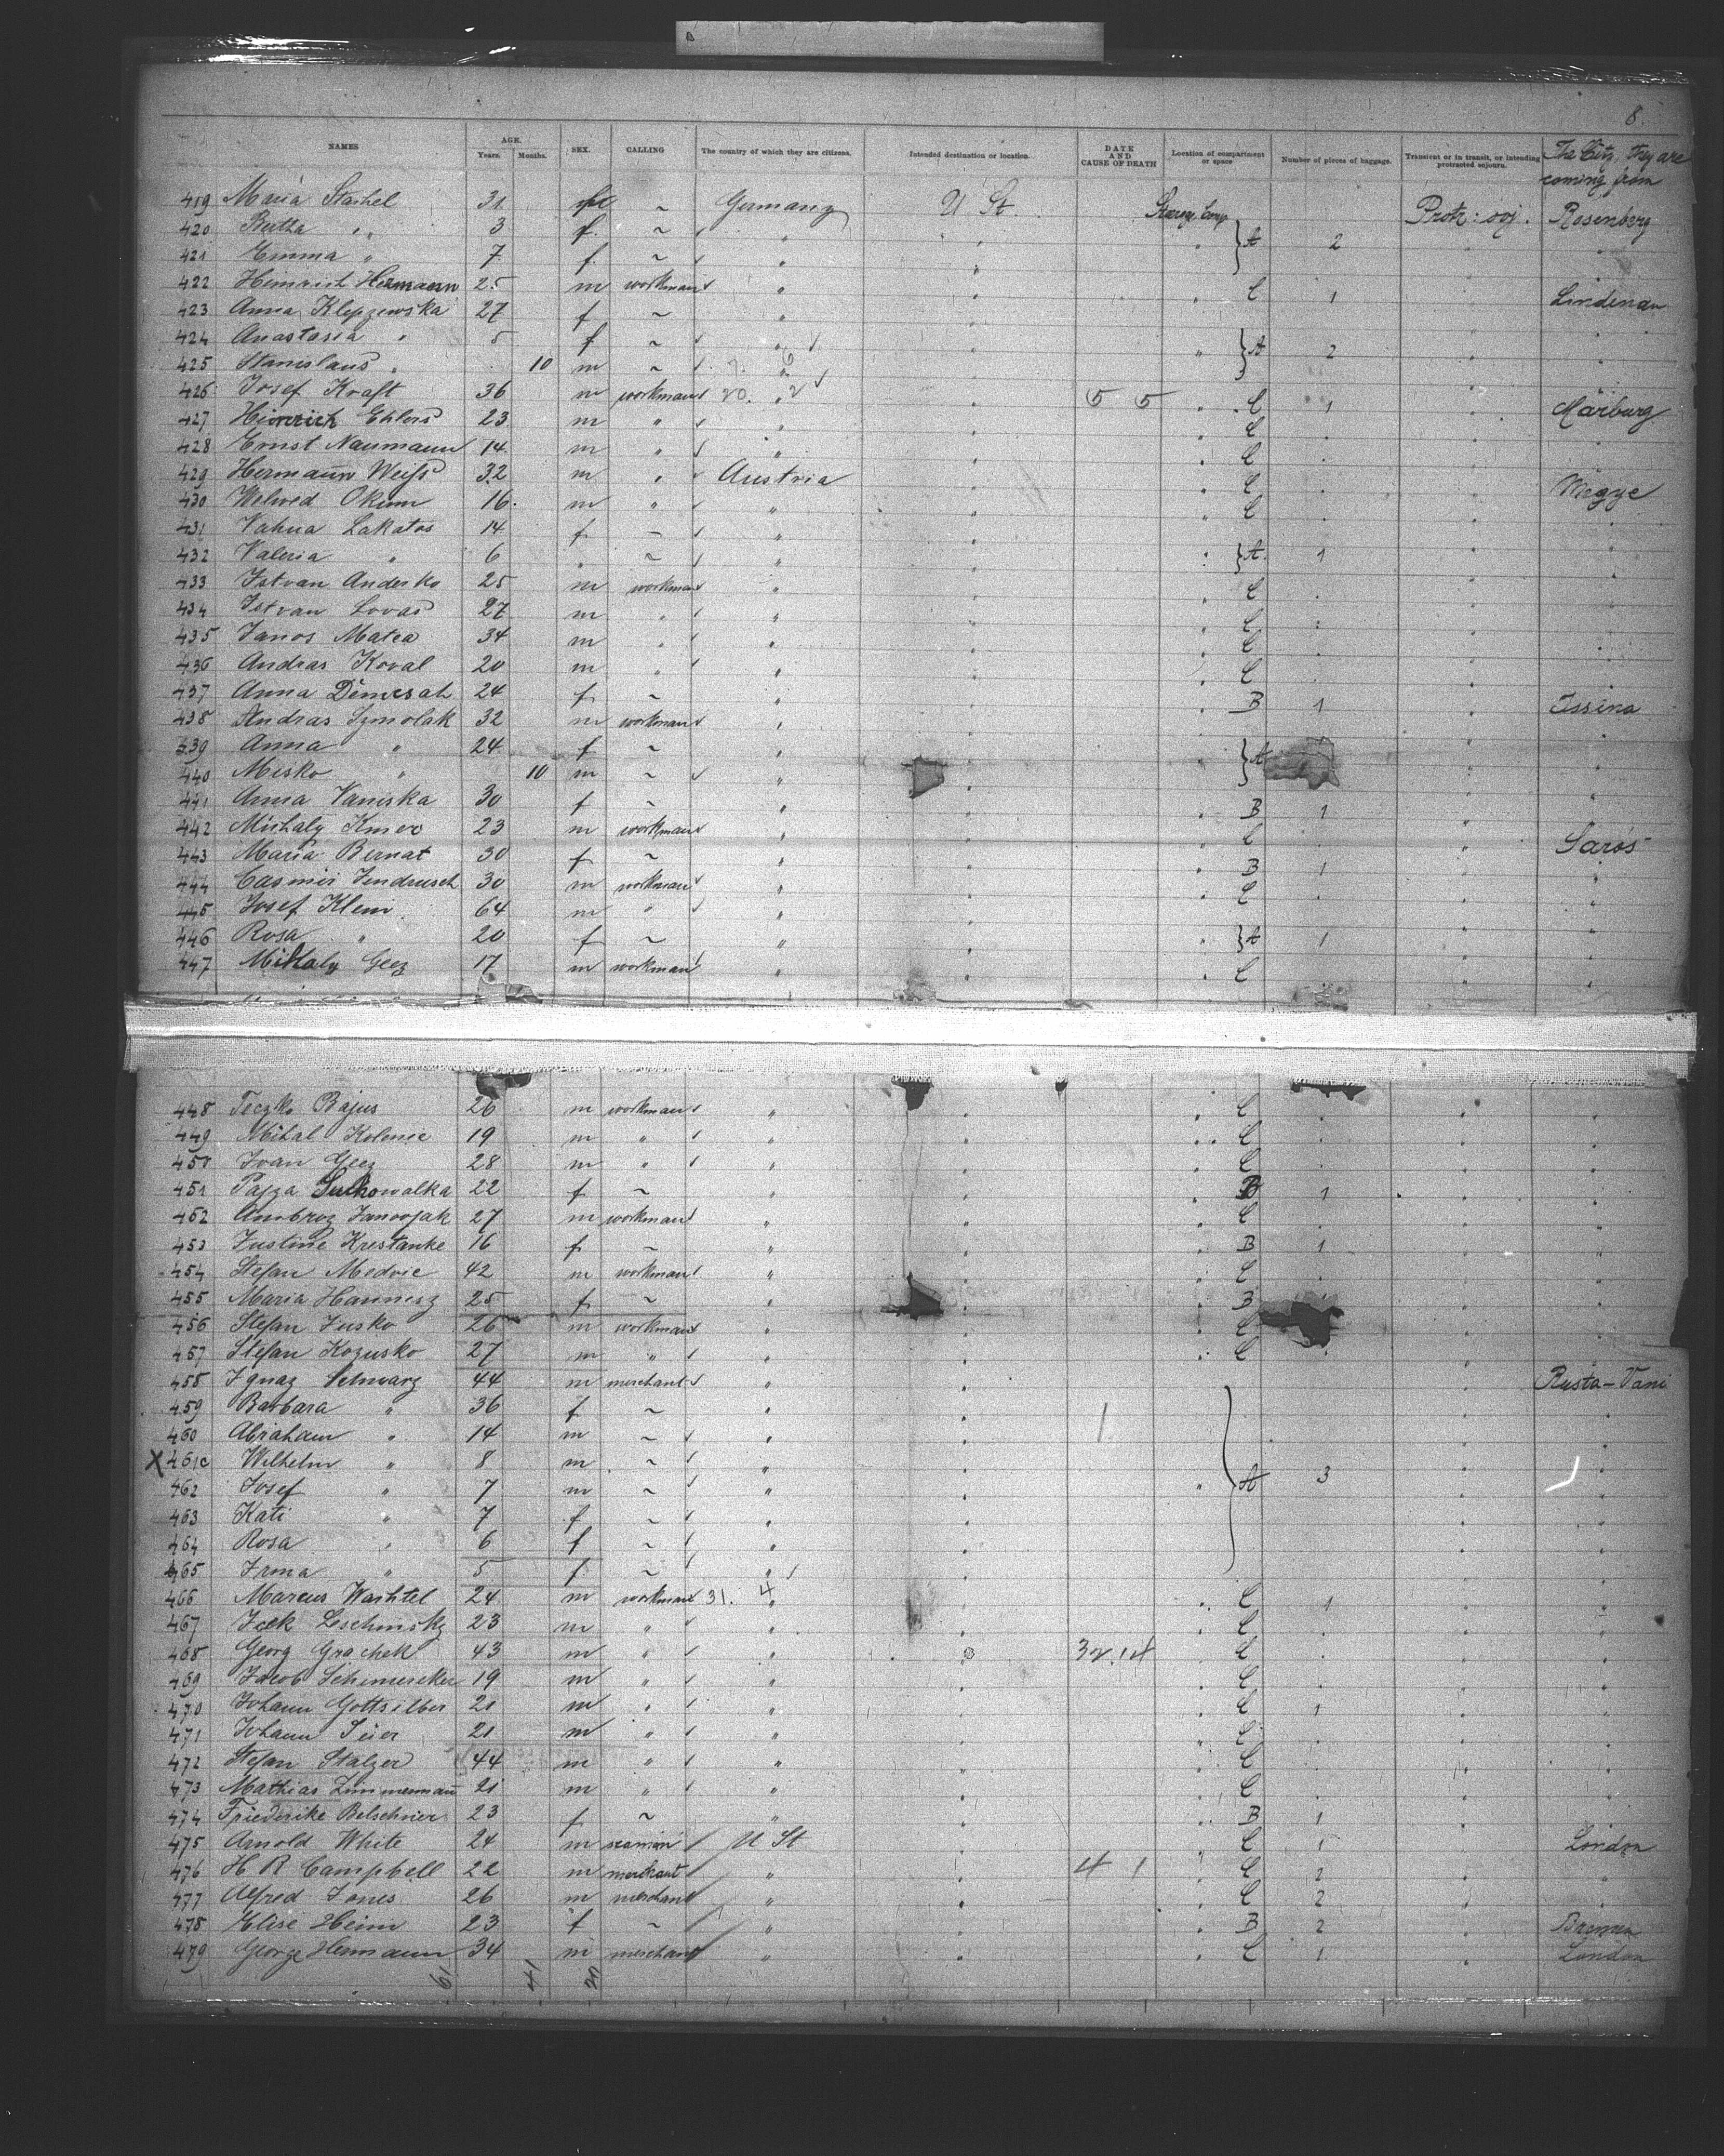 8.
NAMES AGE. Years. Months. SEX. CALLING The country of which they are citizens. Intended destination or location. DATE AND CAUSE OF DEATH Location of compartment or space Number of pieces of baggage. Transient or in transit, or intending protracted sojourn. The City, they are coming from
419 Maria 31 f ~ Germany U St. Protr: soj. Rosenberg
420 Bertha " 3 f. ~ "
421 Emma " 7 f. ~ " " } A 2 "
422 Heinrich Hermann 25 m workman " " C 1 Lindenau
423 Anna Klepzewska 27 f ~ " "
424 Anastasia " 5 f ~ " " } A 2 "
425 Stanislaus " 10 m ~ 7. 6
426 Josef Kraft 36 m workman 20. 2 5 5 C 1 Marburg
427 Hinrich Ehlers 23 m " " C
428 Ernst Naumann 14 m " " C
429 Hermann Weiss 32 m " Austria C Megye
430 Okum 16. m " " C
431 Lakatos 14 f ~ "
432 Valeria " 6 " ~ " } A. 1
433 Istvan Anderko 25 m workman " C
434 Istvan Lovas 27 m " " C
435 Janos Matea 34 m " " C
436 Andras Koval 20 m " " C
437 Anna 24 f ~ " B 1 Issina
438 Andras Szmolak 32 m workman "
439 Anna " 24 f ~ " } A
440 Misko " 10 m ~ "
441 Anna Vaniska 30 f ~ " B 1
442 Mishaly 23 m workman " C Saros
443 Maria Bernat 30 f ~ " B 1
444 Casmir Jendrusch 30 m workman " C
445 Josef Klein 64 m " "
446 Rosa " 20 f ~ " } A 1
447 Mihaly Geez 17 m workman " C
448 Feczko Bajus 26 m workman " C
449 Mihal Kolenic 19 m " " C
450 Ivan Geez 28 m " " C
451 Suchowalka 22 f ~ " B 1
452 Ambroz 27 m workman " C
453 Justine Krestanke 16 f ~ " B 1
454 Stefan Medvic 42 m workman " C
455 Maria 25 f ~ " B
456 Stefan Jusko 26 m workman " C
457 Stefan Kozusko 27 m " " C
458 Ignaz Schwarz 44 m merchant " Rusta-Vani
459 Barbara " 36 f ~ "
460 Abraham " 14 m ~ " 1
X 461c Wilhelm " 8 m ~ "
462 Josef " 7 m ~ " } A 3
463 Kati " 7 f ~ "
464 Rosa " 6 f ~ "
465 Irma " 5 f ~ "
466 Marcus Washtel 24 m workman 31. 4 C 1
467 Leschinsky 23 m " " C
468 Georg Grachek 43 m " " 32.14 C
469 Jacob 19 m " " C
470 Johann Gottsilber 21 m " " C 1
471 Johann 21 m " " C
472 Stefan Stalzer 44 m " " C
473 Mathias Zimmermann 21 m " " C
474 Friederike Belschner 23 f ~ " B 1
475 Arnold White 24 m seaman U St C 1 London
476 H R Campbell 22 m merchant " 4 1 C 2 "
477 Alfred Jones 26 m merchant " C 2 "
478 Elise Heim 23 f ~ " B 2 Bremen
479 George Hermann 34 m merchant " C 1 London
61 41 20